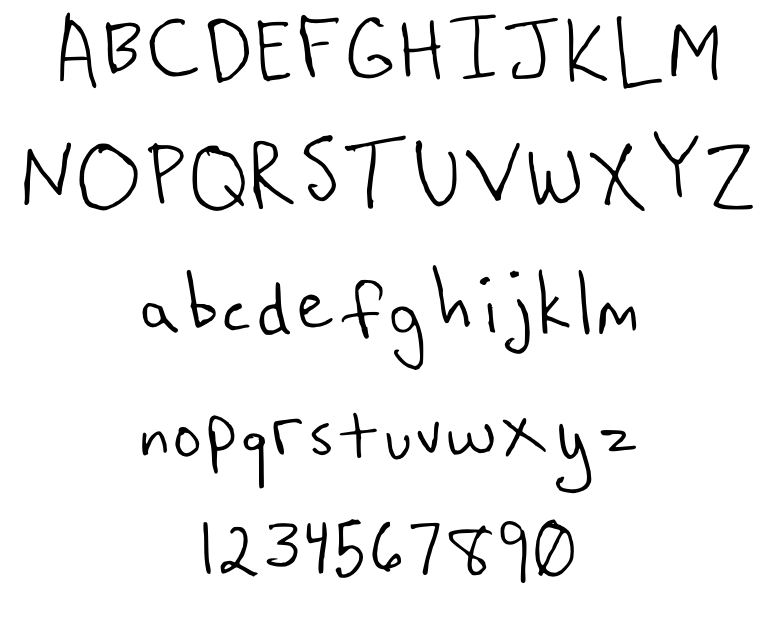 ABCDEFGHIJKLM
NOPQRSTUVWXYZ
abcdefghijklm
nopqrstuvwxyz
1234567890